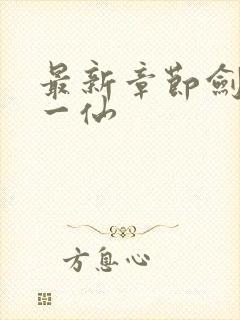 最新章節劍
一仙
方息心